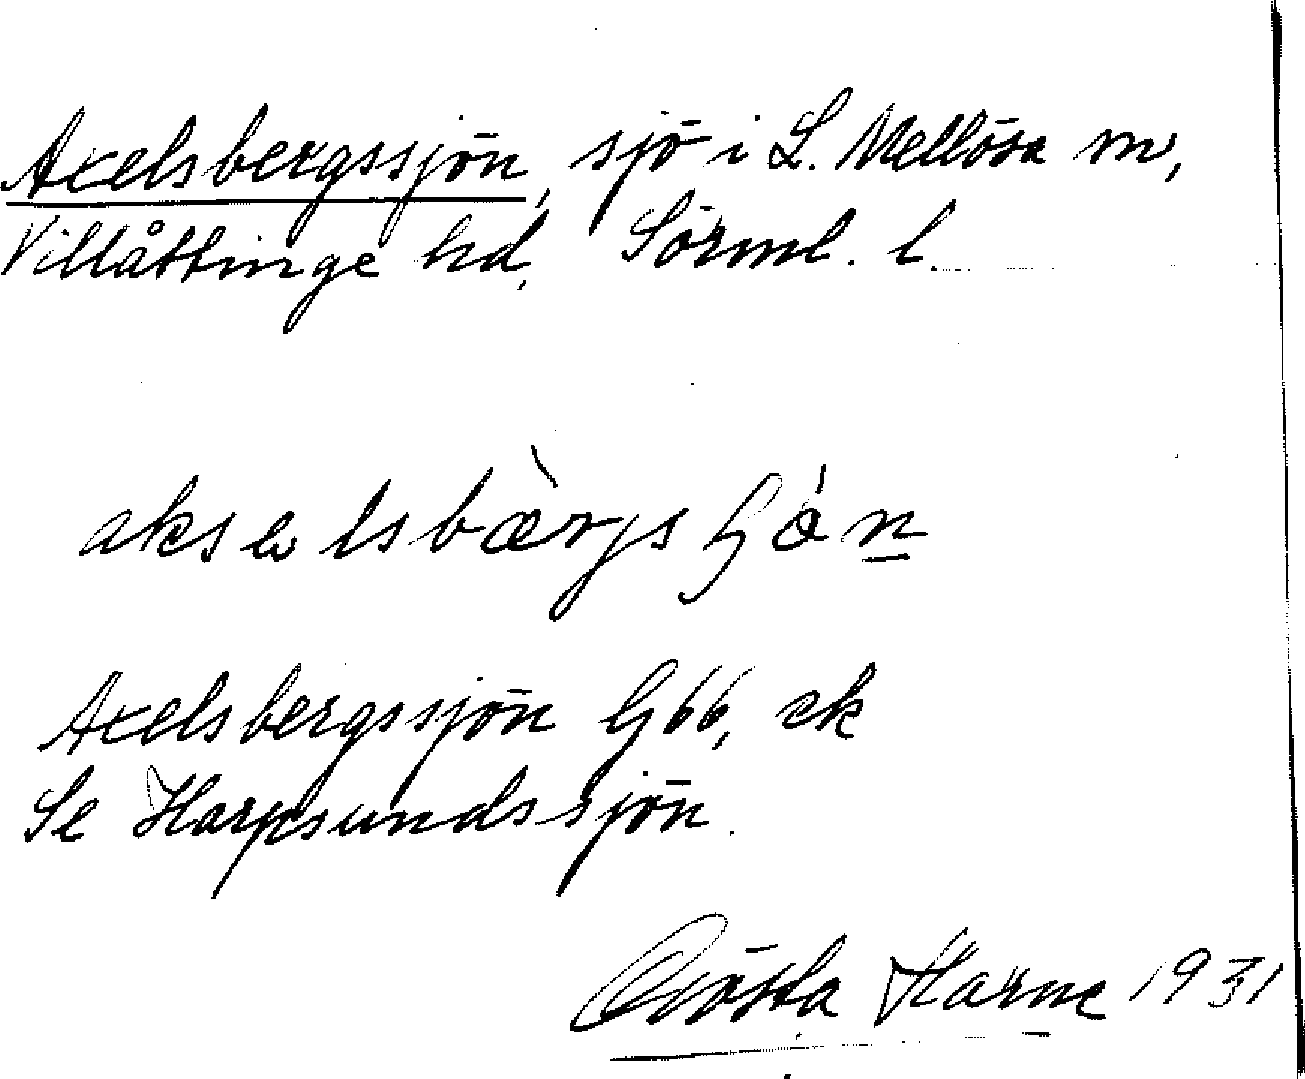 Axelsbergssjön, sjö i L. Mellösa sn,
Villåttinge hd, Sörml. l.
Axelsbergssjön G66, ek
Se Harpsundssjön.
Gösta Härne 1931